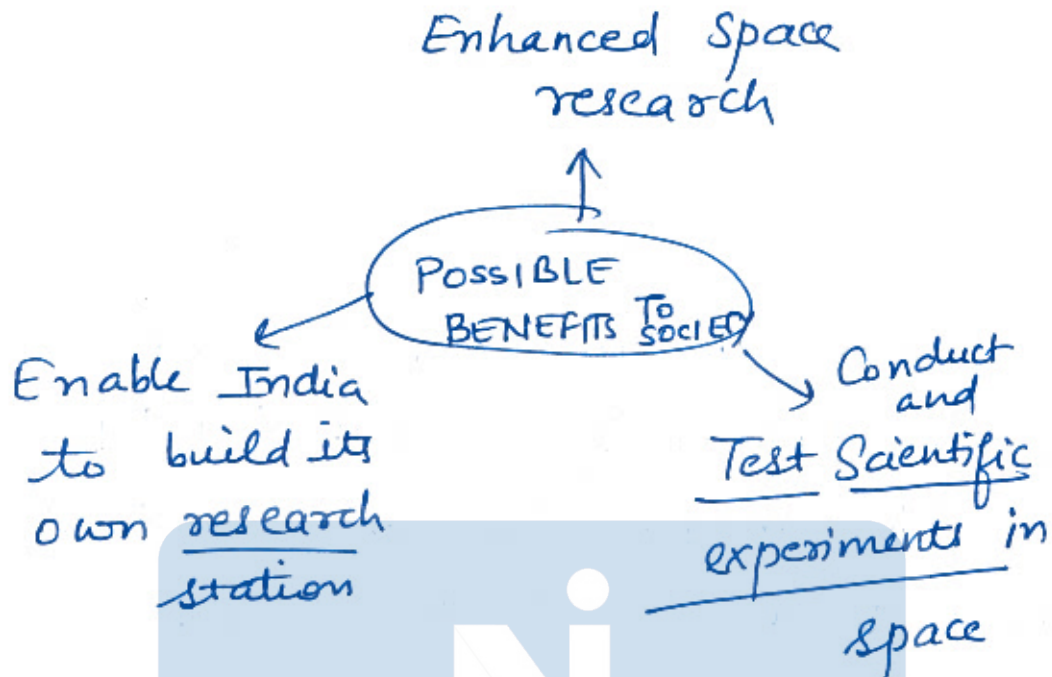 Enhanced Space
research
POSSIBLE
BENEFITS TO
SOCIETY
Enable India
to build its
own research
station
Conduct
and
Test Scientific
experiments in
space